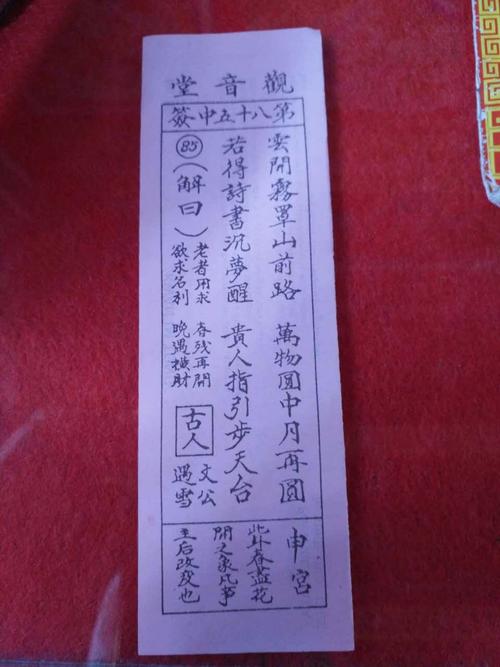 觀音堂
第八十五中簽
雲開霧罩山前路 萬物圓中月再圓
若得詩書沉夢醒 貴人指引步天台
85(解曰)
老者用求 春残再開
欲求名利 晚遇横財
古人
文公
遇雪
申宮
此卦春盡花
開之象凡事
主后改变也